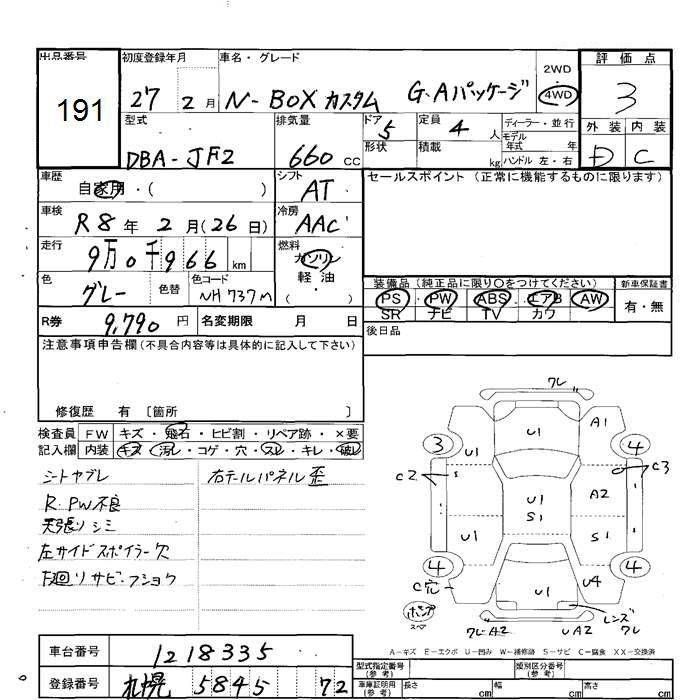 出品番号 初度登録年月 車名・グレード 2WD 評価点
191 27 2月 N-BOX カスタム G・Aパッケージ 4WD 3
型式 排気量 ドア 定員 ディーラー・並行 外装 内装
DBA-JF2 660cc 5 4人 モデル年式 年 D C
形状 積載 kg ハンドル 左・右
車歴 自家用・( ) シフト AT セールスポイント (正常に機能するものに限ります)
車検 R8年2月(26日) 冷房 AAC
走行 9万0千966km 燃料 ガソリン 軽油 ( )
色 グレー 色替 色コード NH737M
装備品 (純正品に限り○をつけてください) 新車保証書
PS PW ABS エアB AW 有・無
SR ナビ TV カワ
R券 9,790円 名変期限 月 日 後日品
注意事項申告欄(不具合内容等は具体的に記入して下さい)
修復歴 有 〔箇所 〕
検査員 FW キズ・飛石・ヒビ割・リペア跡・×要
記入欄 内装 キズ・汚レ・コゲ・穴・スレ・キレ・破レ
シートヤブレ 右テールパネル歪
R.PW不良
天張リシミ
左サイドスポイラー欠
下廻リサビ・フショク
ワレ
3 U1 U1 A1 4
C2 C3
U1 S1 A2
U1 S1
4 U1 U4 4
C穴
ポンプ スペア ワレA2 UA2 レンズワレ
A-キズ E-エクボ U-凹み W-補修跡 S-サビ C-腐食 XX-交換済
車台番号 1218335
型式指定番号(参考) 類別区分番号(参考)
登録番号 札幌 5845 72
車庫証明(参考) 長さ cm 幅 cm 高さ cm